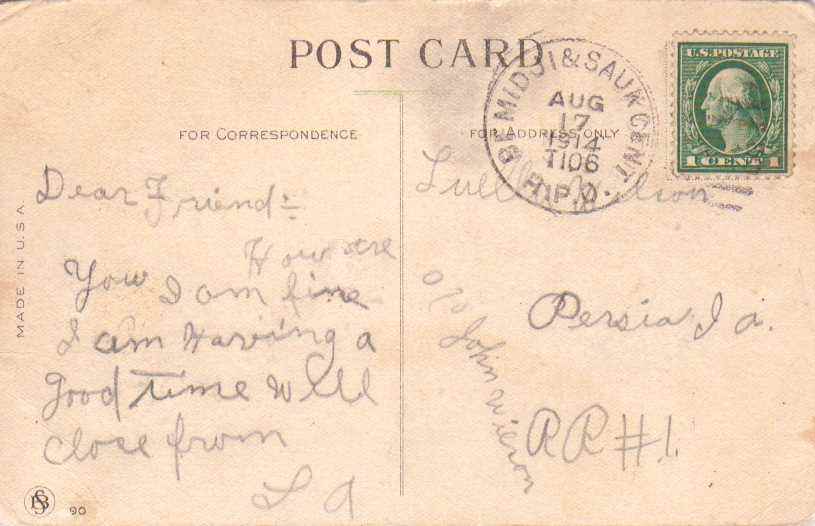 POST CARD
FOR CORRESPONDENCE
FOR ADDRESS ONLY
U.S. POSTAGE
1 CENT 1
BEMIDJI & SAUK CENT.
AUG
17
1914
T106
R.P.O.
MADE IN U.S.A.
Dear Friend:-
How are
You I am fine
I am Having a
good time Will
close from
L A
Wilson
Persia, Ia.
c/o John Wilson
RR#1.
90